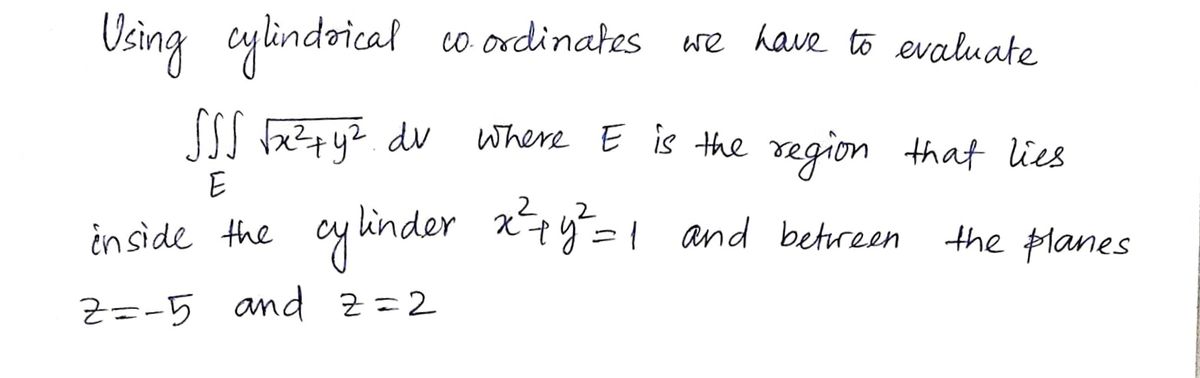 Using cylindrical co-ordinates we have to evaluate
∫∫∫ √x²+y². dv where E is the region that lies
E
inside the cylinder x²+y²=1 and between the planes
z=-5 and z=2